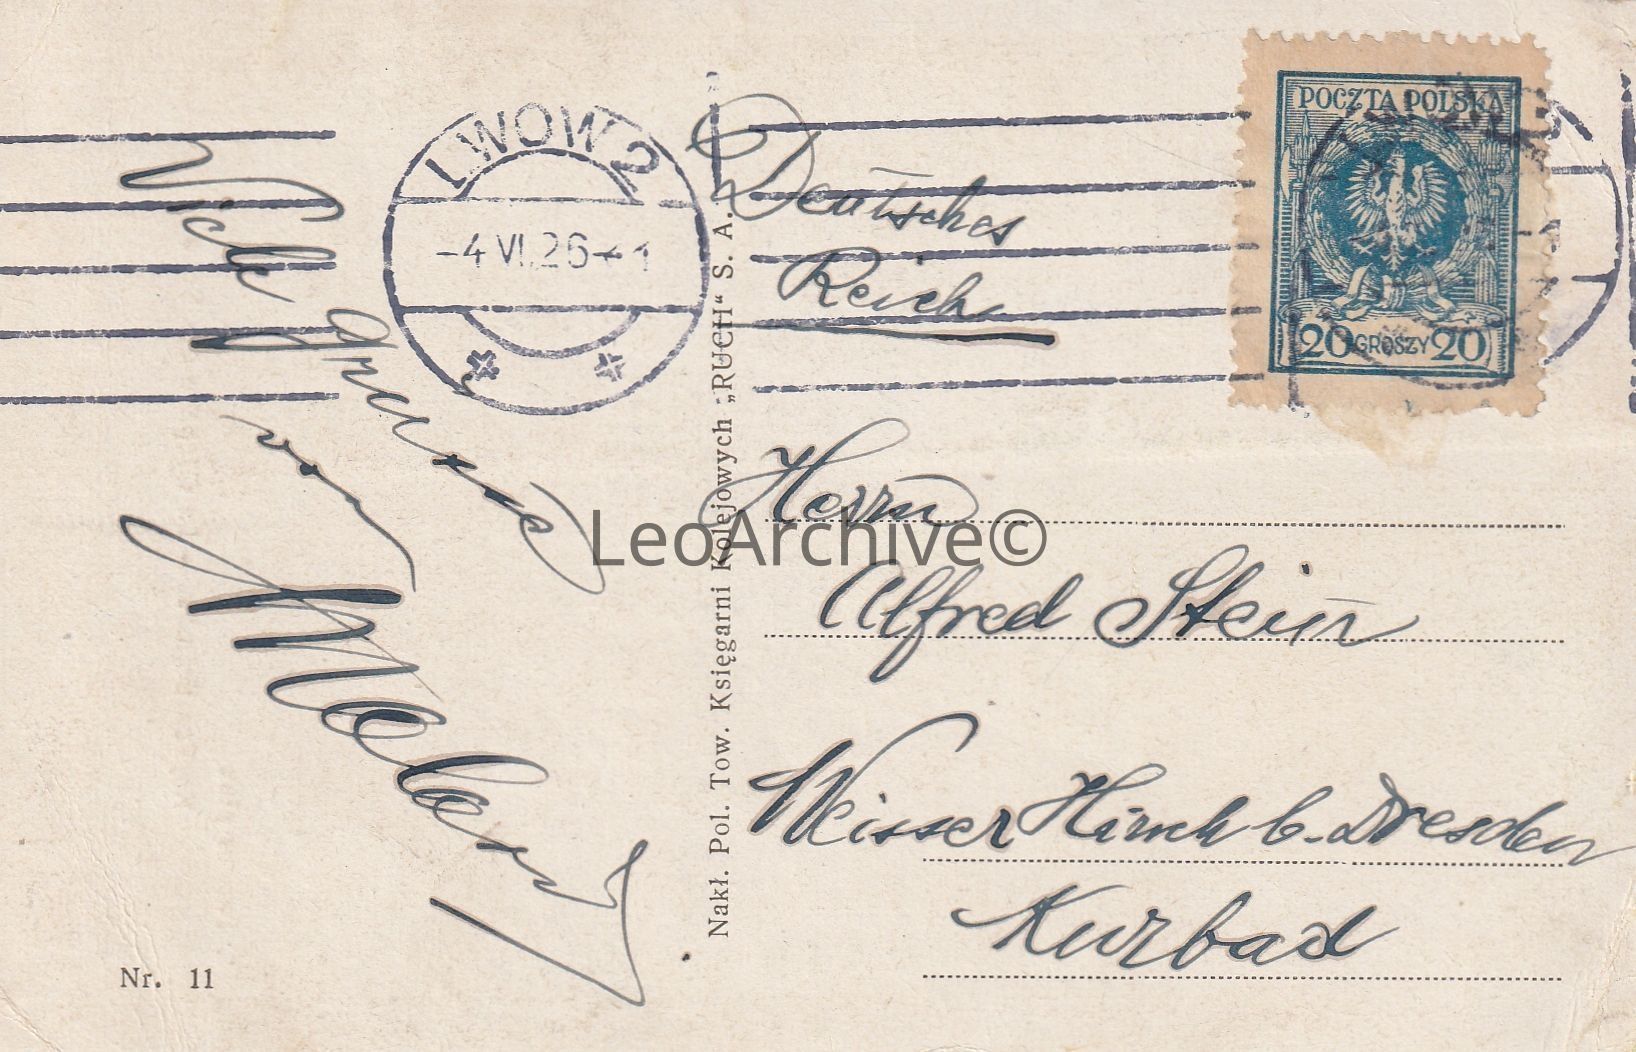 LWOW 2
-4 VI.26-
POCZTA POLSKA
20 GROSZY 20
Deutsches
Reich
Viele Grüsse
von
Nakł. Pol. Tow. Księgarni Kolejowych „RUCH" S. A.
Herrn
Alfred Stein
Weisser Hirsch b. Dresden
Kurbad
Nr. 11
LeoArchive©